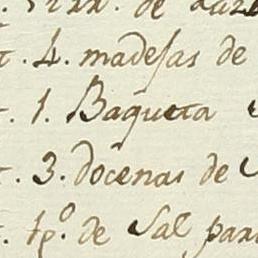 de
4. madejas de
1. Baqueta
3. docenas de
tp.º de Sal para